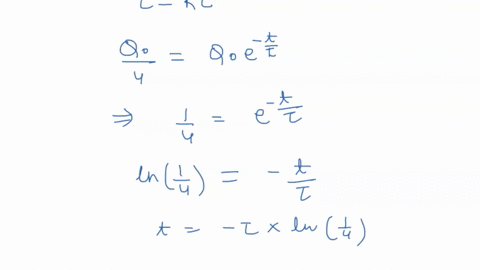 τ = RC
Q₀/4 = Q₀ e^(-t/τ)
⇒ 1/4 = e^(-t/τ)
ln(1/4) = - t/τ
t = -τ × ln(1/4)